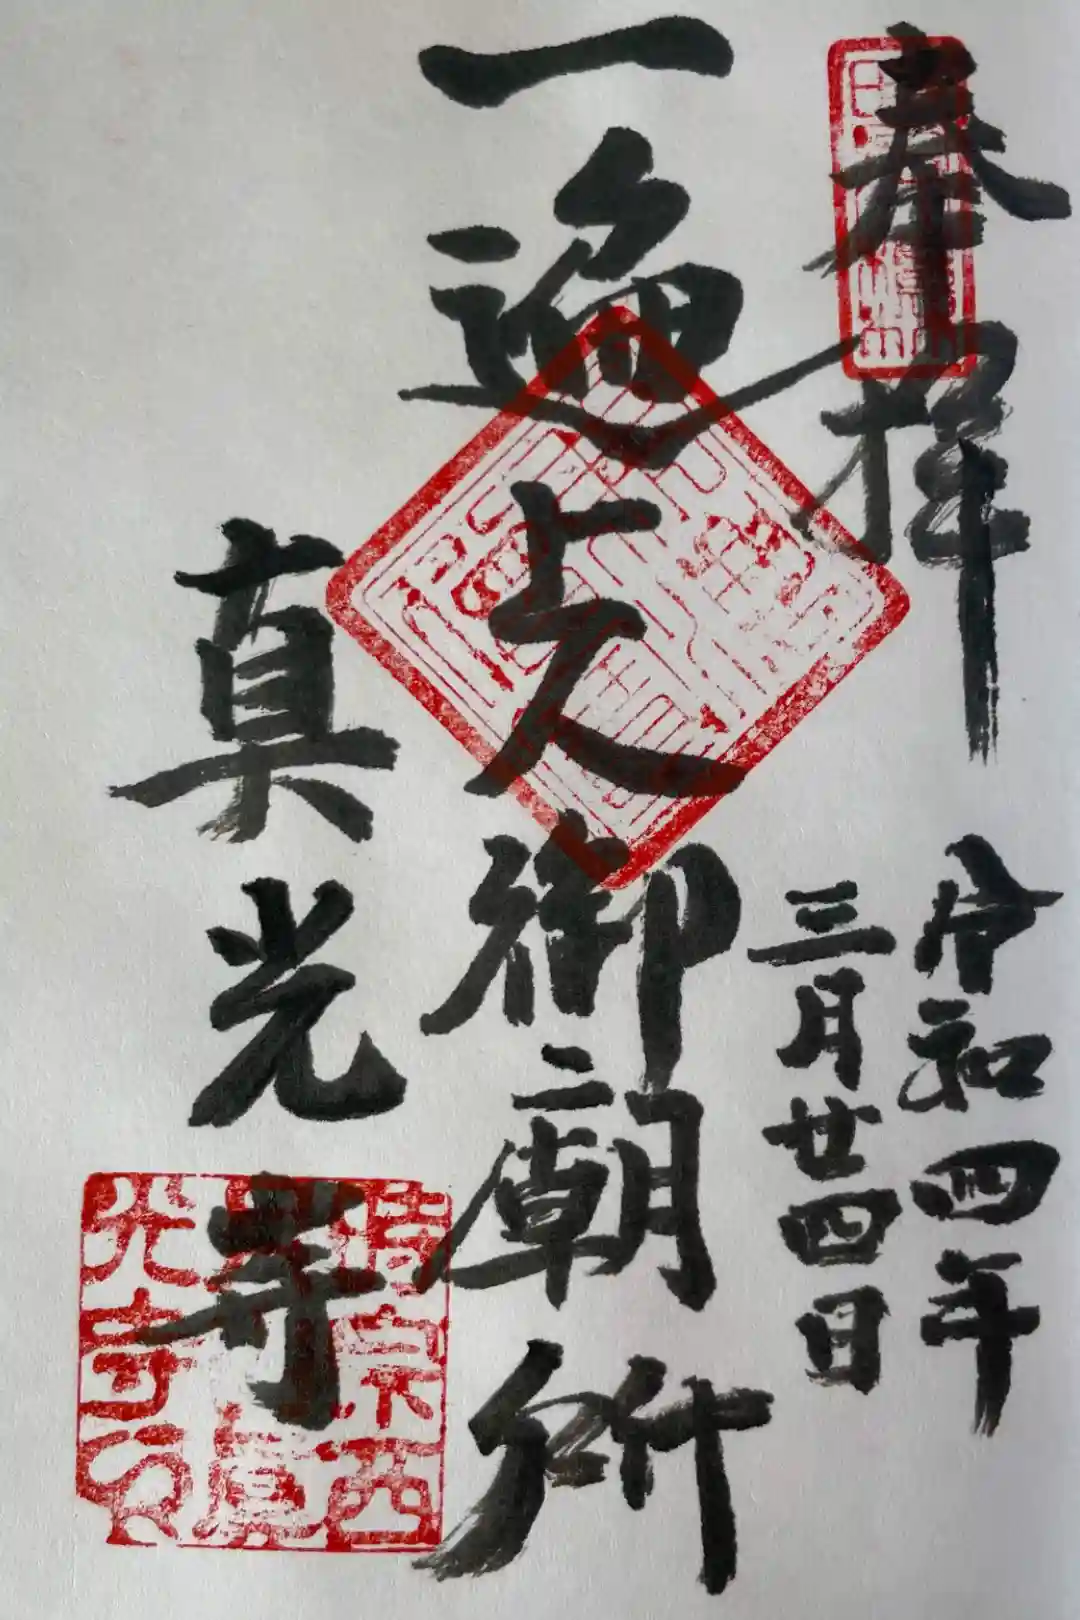 奉拝
令和四年
三月廿四日
一遍上人御廟所
真光寺
時宗西
光寺印